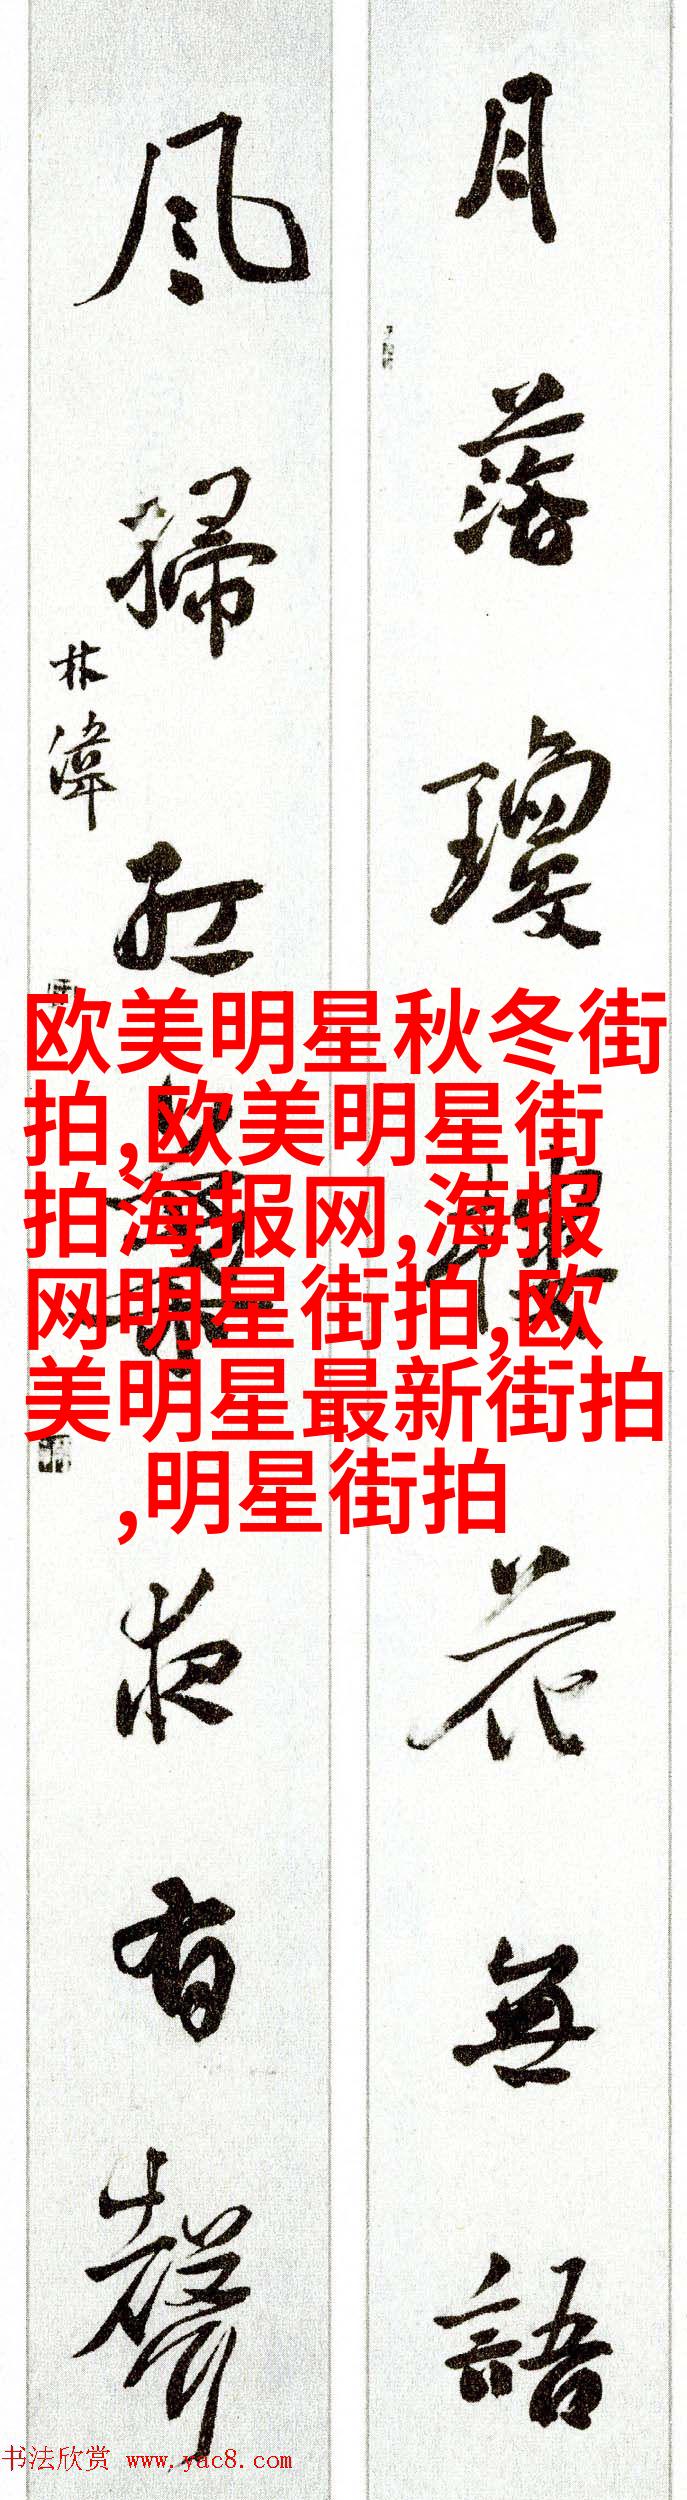 月落瓊樓花無語
風掃紅夜有聲
林
欧美明星秋冬街
拍,欧美明星街
拍海报网,海报
网明星街拍,欧
美明星最新街拍
,明星街拍
书法欣赏 www.yac8.com